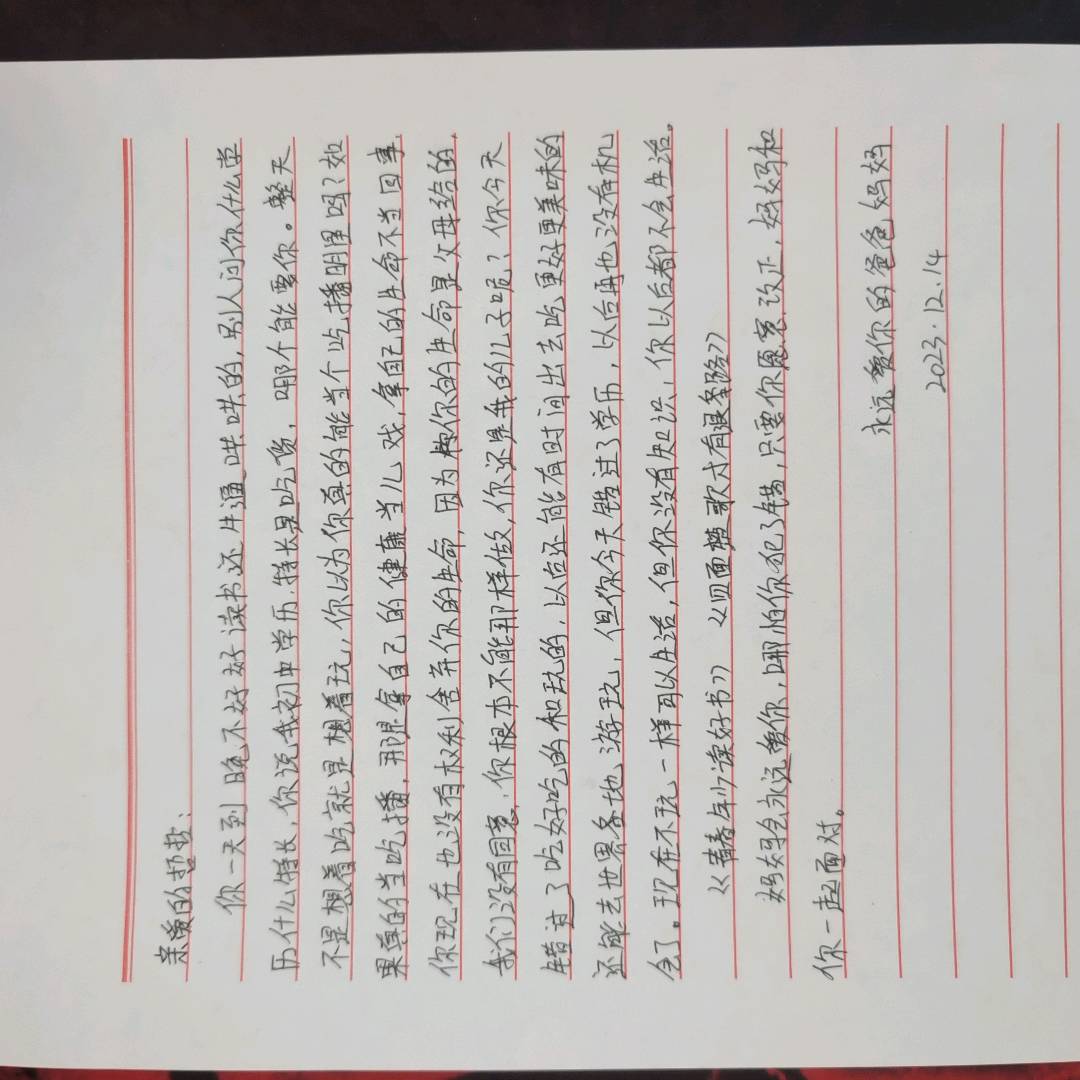 亲爱的哲哲：
你一天到晚不好好读书还牛逼哄哄的，别人问你什么学
历什么特长，你说我初中学历，特长是吃货，哪个能要你。整天
不是想着吃就是想着玩，你以为你真的能当个吃播明星吗？如
果真的当吃播，那是拿自己的健康当儿戏，拿自己的生命不当回事，
你现在也没有权利舍弃你的生命，因为你的生命是父母给的，
我们没有同意，你根本不能那样做，你还是我的儿子呢？你今天
错过了吃好吃的和玩的，以后还能有时间出去吃更好更美味的
还能去世界各地游玩，但你今天错过了学历，以后再也没有机
会了。现在不玩一样可以生活，但你没有知识，你以后都不会生活。
《青春年少读好书》 《四面楚歌才有退路》
妈妈会永远爱你，哪怕你犯了错，只要你愿意改正，妈妈和
你一起面对。
永远爱你的爸爸妈妈
2023.12.14